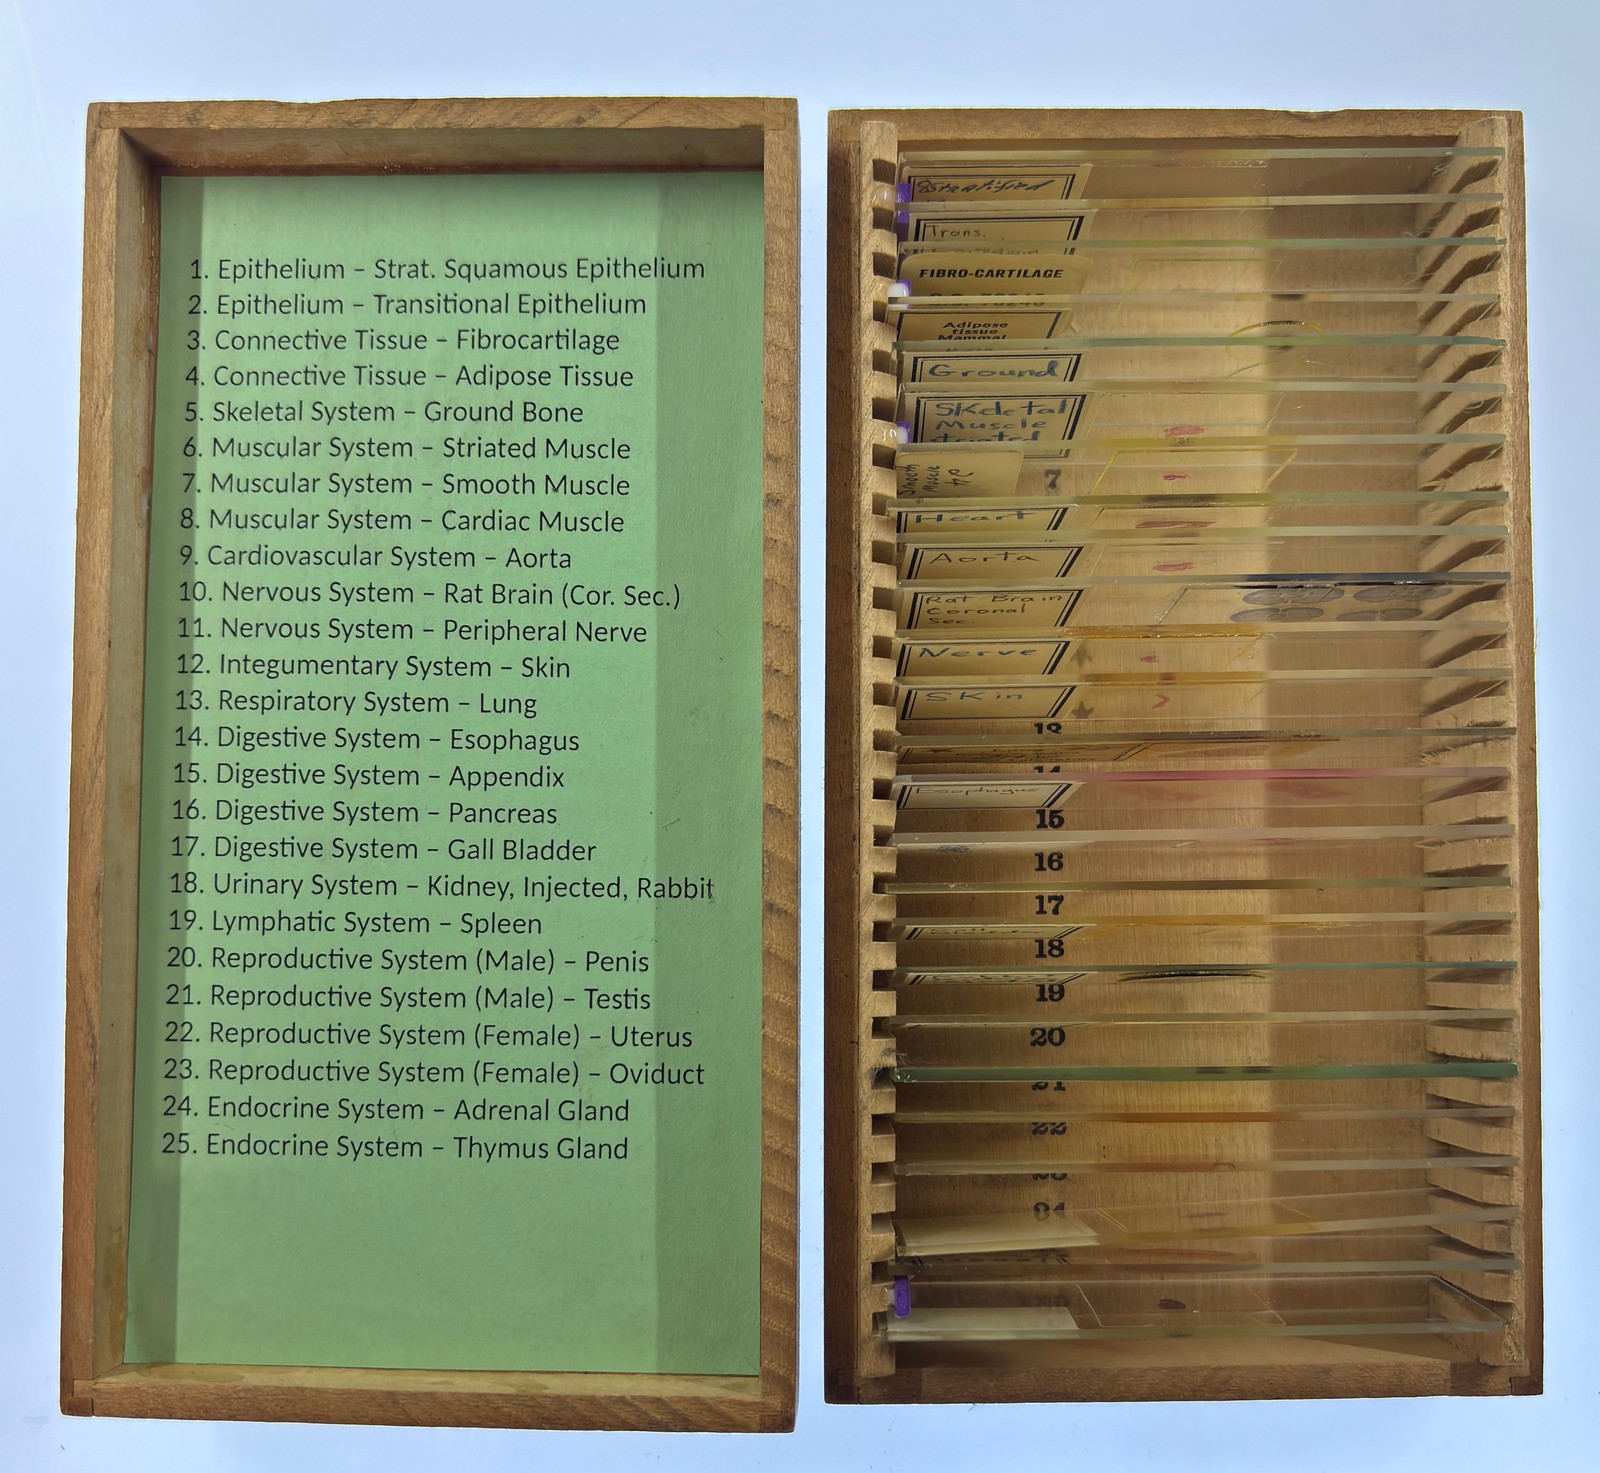 1. Epithelium – Strat. Squamous Epithelium
2. Epithelium – Transitional Epithelium
3. Connective Tissue – Fibrocartilage
4. Connective Tissue – Adipose Tissue
5. Skeletal System – Ground Bone
6. Muscular System – Striated Muscle
7. Muscular System – Smooth Muscle
8. Muscular System – Cardiac Muscle
9. Cardiovascular System – Aorta
10. Nervous System – Rat Brain (Cor. Sec.)
11. Nervous System – Peripheral Nerve
12. Integumentary System – Skin
13. Respiratory System – Lung
14. Digestive System – Esophagus
15. Digestive System – Appendix
16. Digestive System – Pancreas
17. Digestive System – Gall Bladder
18. Urinary System – Kidney, Injected, Rabbit
19. Lymphatic System – Spleen
20. Reproductive System (Male) – Penis
21. Reproductive System (Male) – Testis
22. Reproductive System (Female) – Uterus
23. Reproductive System (Female) – Oviduct
24. Endocrine System – Adrenal Gland
25. Endocrine System – Thymus Gland
Stratified
Trans.
FIBRO-CARTILAGE
Adipose
tissue
Mammal
Ground
Skeletal
Muscle
striated
Smooth
Muscle
7
Heart
Aorta
Rat Brain
Coronal
Sec.
Nerve
Skin
13
14
Esophagus
15
16
17
18
19
20
21
22
23
24